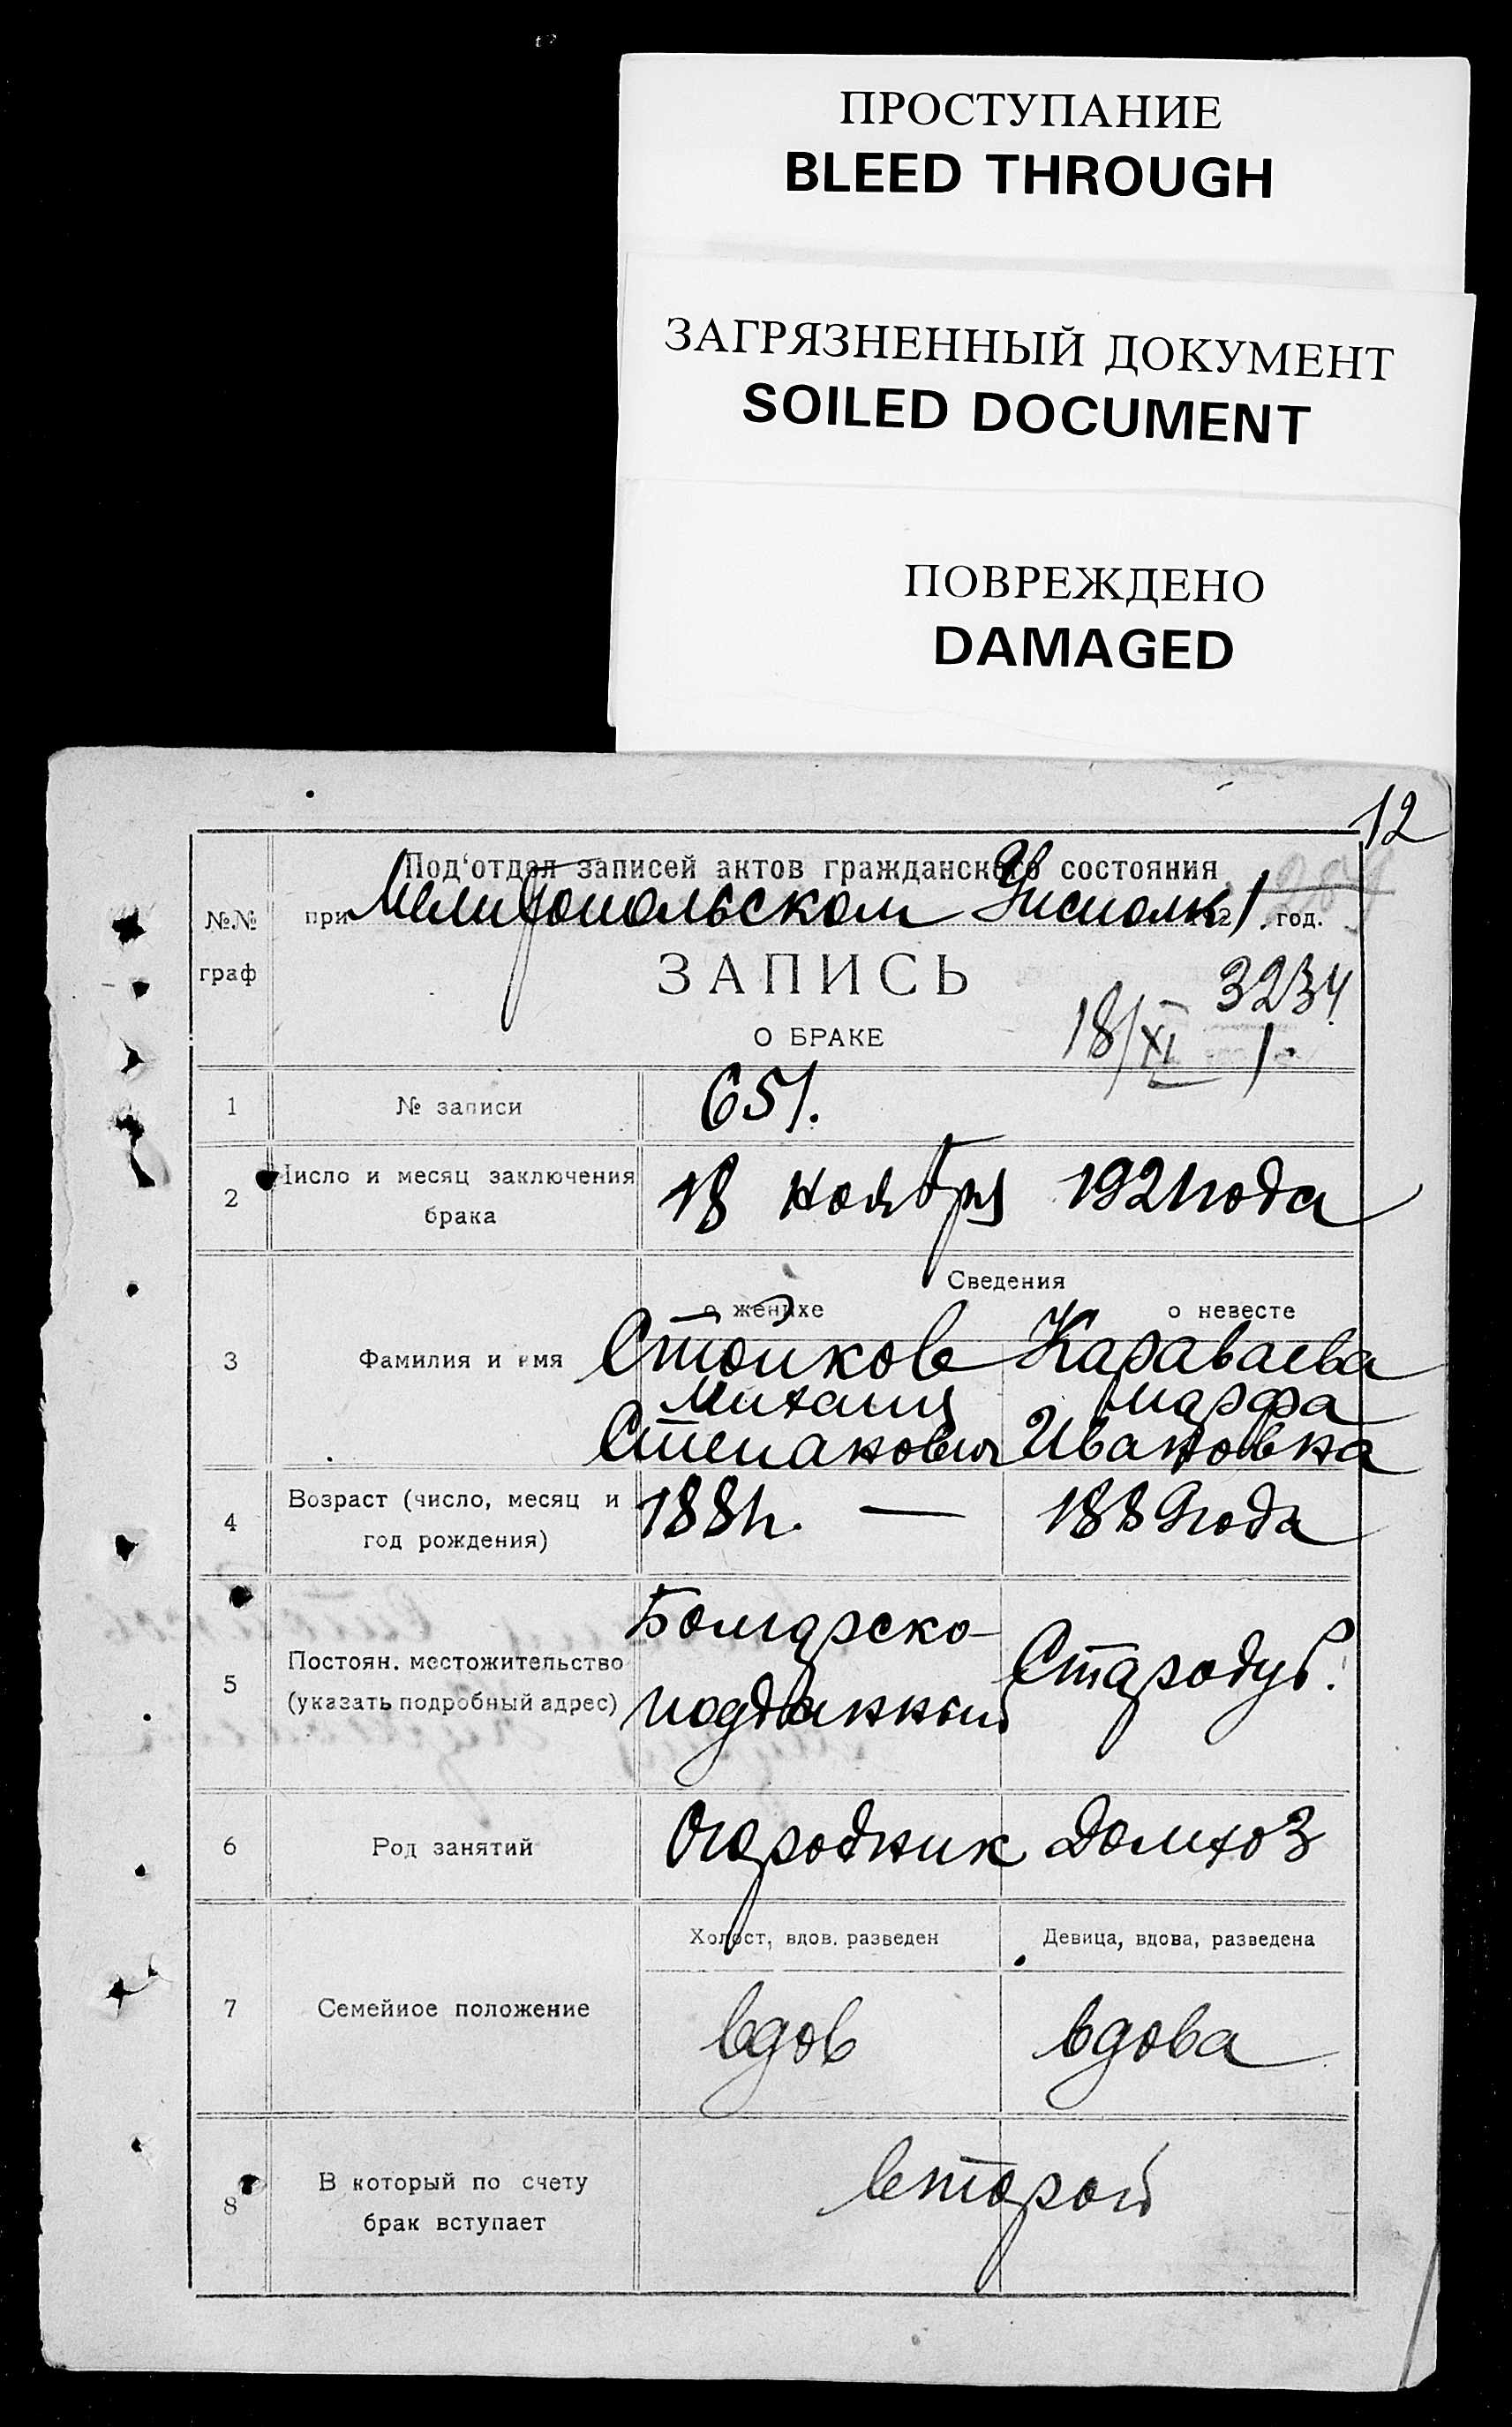 ПРОСТУПАНИЕ
BLEED THROUGH
ЗАГРЯЗНЕННЫЙ ДОКУМЕНТ
SOILED DOCUMENT
ПОВРЕЖДЕНО
DAMAGED
12
Под'отдел записей актов гражданского состояния
№№ граф
при Мелитопольском Уисполк 2 1. год.
ЗАПИСЬ
3234
О БРАКЕ
18/XI 1.
1 № записи 651.
2 Число и месяц заключения брака 18 ноября 1921 года
Сведения
о женихе о невесте
3 Фамилия и имя Стойков Караваева
Михаил Марфа
Степанович Ивановна
4 Возраст (число, месяц и год рождения) 1881г. — 1889 года
5 Постоян. местожительство (указать подробный адрес) Болгарско-подданный Стародуб.
6 Род занятий Огородник Домхоз
Холост, вдов. разведен Девица, вдова, разведена
7 Семейное положение вдов вдова
8 В который по счету брак вступает второй